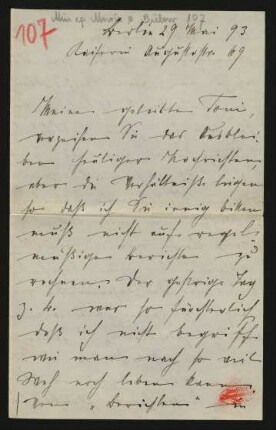 107
107
Berlin 29 Mai 93
Kaiserin Augustastr. 69
Meine geliebte Toni,
verzeihen Sie das Ausblei-
ben heutiger Nachrichten,
aber die Verhältniße liegen
so daß ich Sie innig bitten
muß nicht auf regel-
mäßige Berichte zu
rechnen. Der gestrige Tag
z. B. war so fürchterlich
daß ich nicht begriff
wie man nach so viel
Weh noch leben kann.
„Berichten"